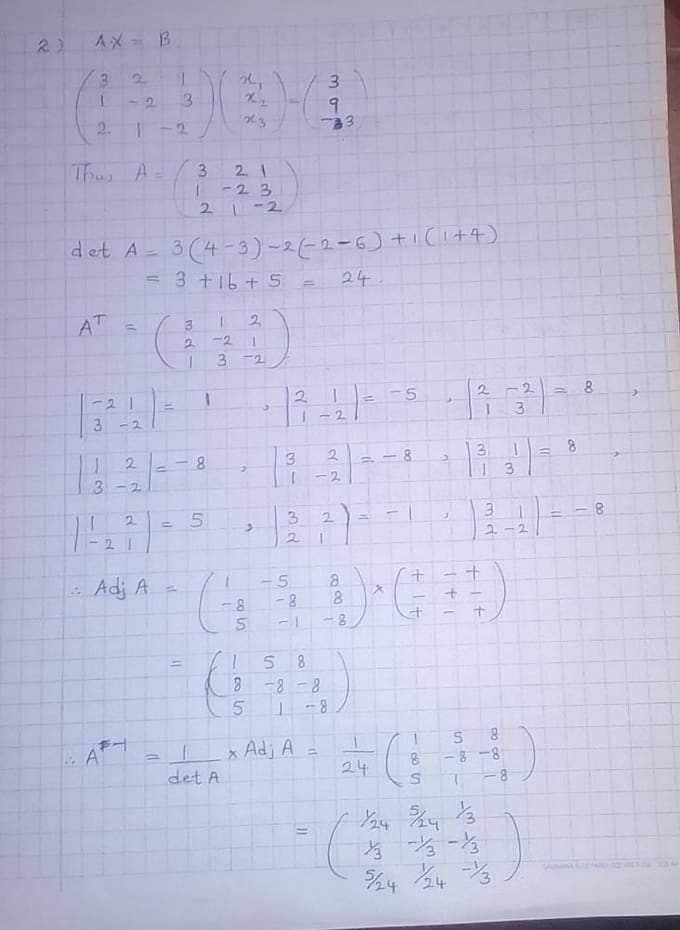 2) AX = B
( 3 2 1 ; 1 -2 3 ; 2 1 -2 ) ( x₁ ; x₂ ; x₃ ) = ( 3 ; 9 ; -3 )
Thus A = ( 3 2 1 ; 1 -2 3 ; 2 1 -2 )
det A = 3(4-3) -2(-2-6) +1(1+4)
= 3 +16 + 5 = 24
Aᵀ = ( 3 1 2 ; 2 -2 1 ; 1 3 -2 )
| -2 1 ; 3 -2 | = 1 , | 2 1 ; 1 -2 | = -5 , | 2 -2 ; 1 3 | = 8 ,
| 1 2 ; 3 -2 | = -8 , | 3 2 ; 1 -2 | = -8 , | 3 1 ; 1 3 | = 8 ,
| 1 2 ; -2 1 | = 5 , | 3 2 ; 2 1 | = -1 , | 3 1 ; 2 -2 | = -8
∴ Adj A = ( 1 -5 8 ; -8 -8 8 ; 5 -1 -8 ) × ( + - + ; - + - ; + - + )
= ( 1 5 8 ; 8 -8 -8 ; 5 1 -8 )
∴ A⁻¹ = 1/det A × Adj A = 1/24 ( 1 5 8 ; 8 -8 -8 ; 5 1 -8 )
= ( 1/24 5/24 1/3 ; 1/3 -1/3 -1/3 ; 5/24 1/24 -1/3 )